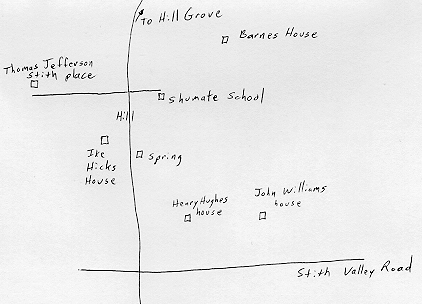 To Hill Grove
Barnes House
Thomas Jefferson
Stith place
Shumate School
Hill
Ike
Hicks
House
Spring
Henry Hughes
house
John Williams
house
Stith Valley Road